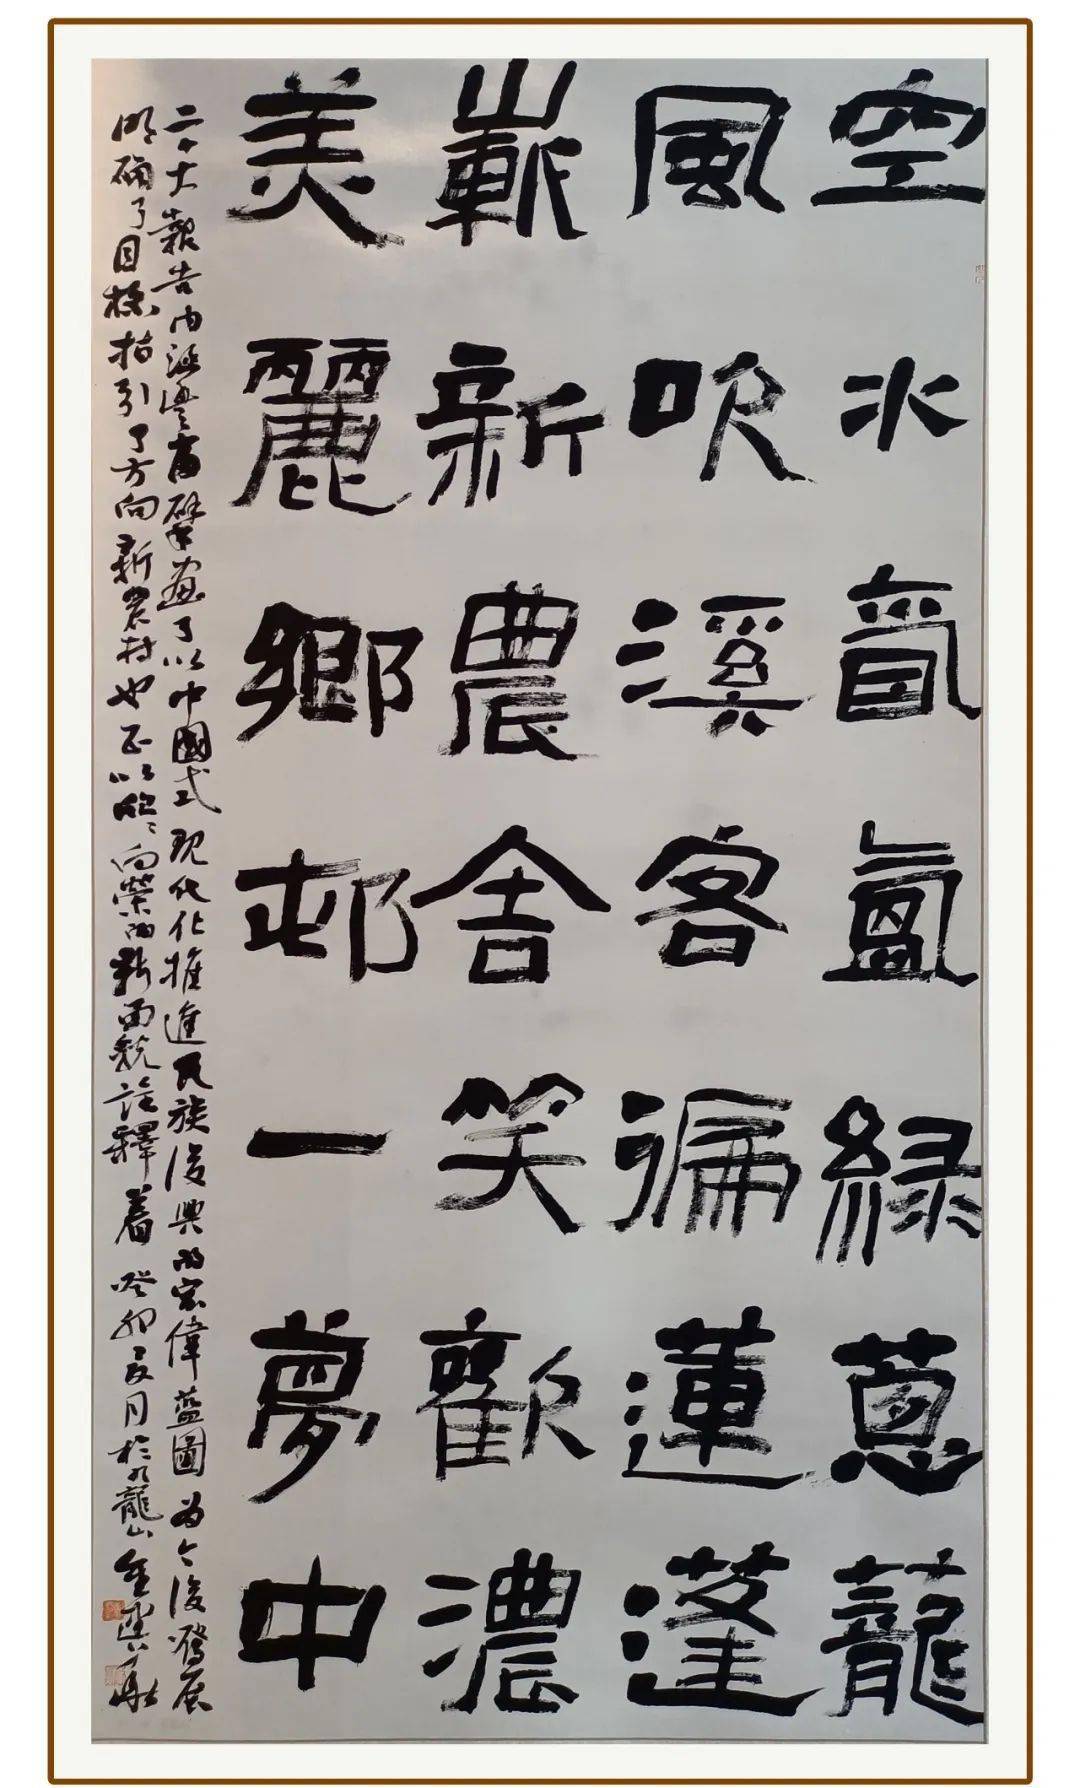 空水氤氲綠蔥蘢
風吹溪客徧蓮蓬
嶄新農舍笑歡濃
美麗鄉邨一夢中
二十大報告内涵豐富擘畫了以中國式現代化推進民族復興的宏偉藍圖为今後發展
明确了目標指引了方向新農村也正以欣欣向榮的新面貌詮釋着 癸卯夏月於九龍山